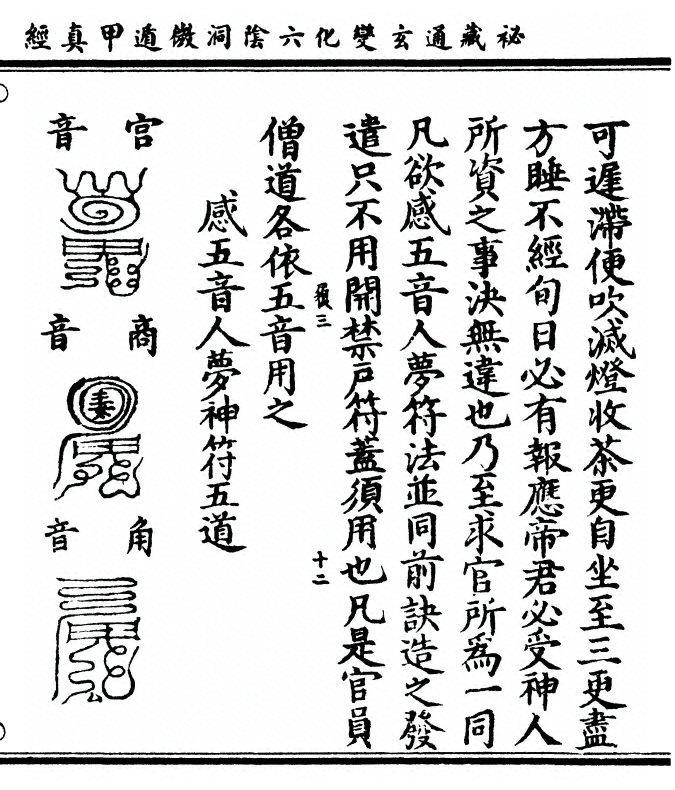 祕藏通玄變化六陰洞微遁甲真經
可遲滯便吹滅燈收茶更自坐至三更盡
方睡不經旬日必有報應帝君必受神人
所資之事決無違也乃至求官所爲一同
凡欲感五音人夢符法並同前訣造之發
遣只不用開禁戶符蓋須用也凡是官員
須三 十二
僧道各依五音用之
感五音人夢神符五道
宮音
商音
角音